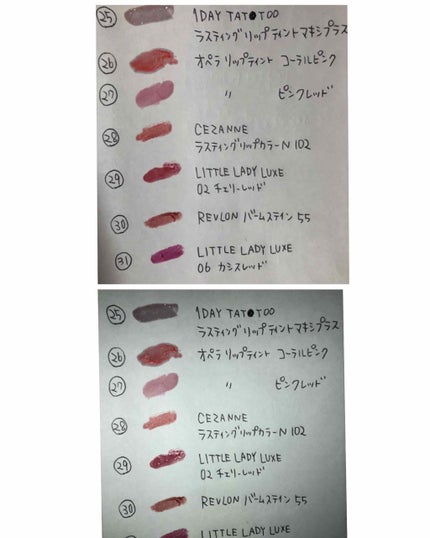 25 1DAY TATOTOO
ラスティングリップティントマキシプラス
26 オペラ リップティント コーラルピンク
27 〃 ピンクレッド
28 CEZANNE
ラスティングリップカラーN 102
29 LITTLE LADY LUXE
02 チェリーレッド
30 REVLON バームステイン 55
31 LITTLE LADY LUXE
06 カシスレッド
25 1DAY TATOTOO
ラスティングリップティントマキシプラス
26 オペラ リップティント コーラルピンク
27 〃 ピンクレッド
28 CEZANNE
ラスティングリップカラーN 102
29 LITTLE LADY LUXE
02 チェリーレッド
30 REVLON バームステイン 55
LITTLE LADY LUXE